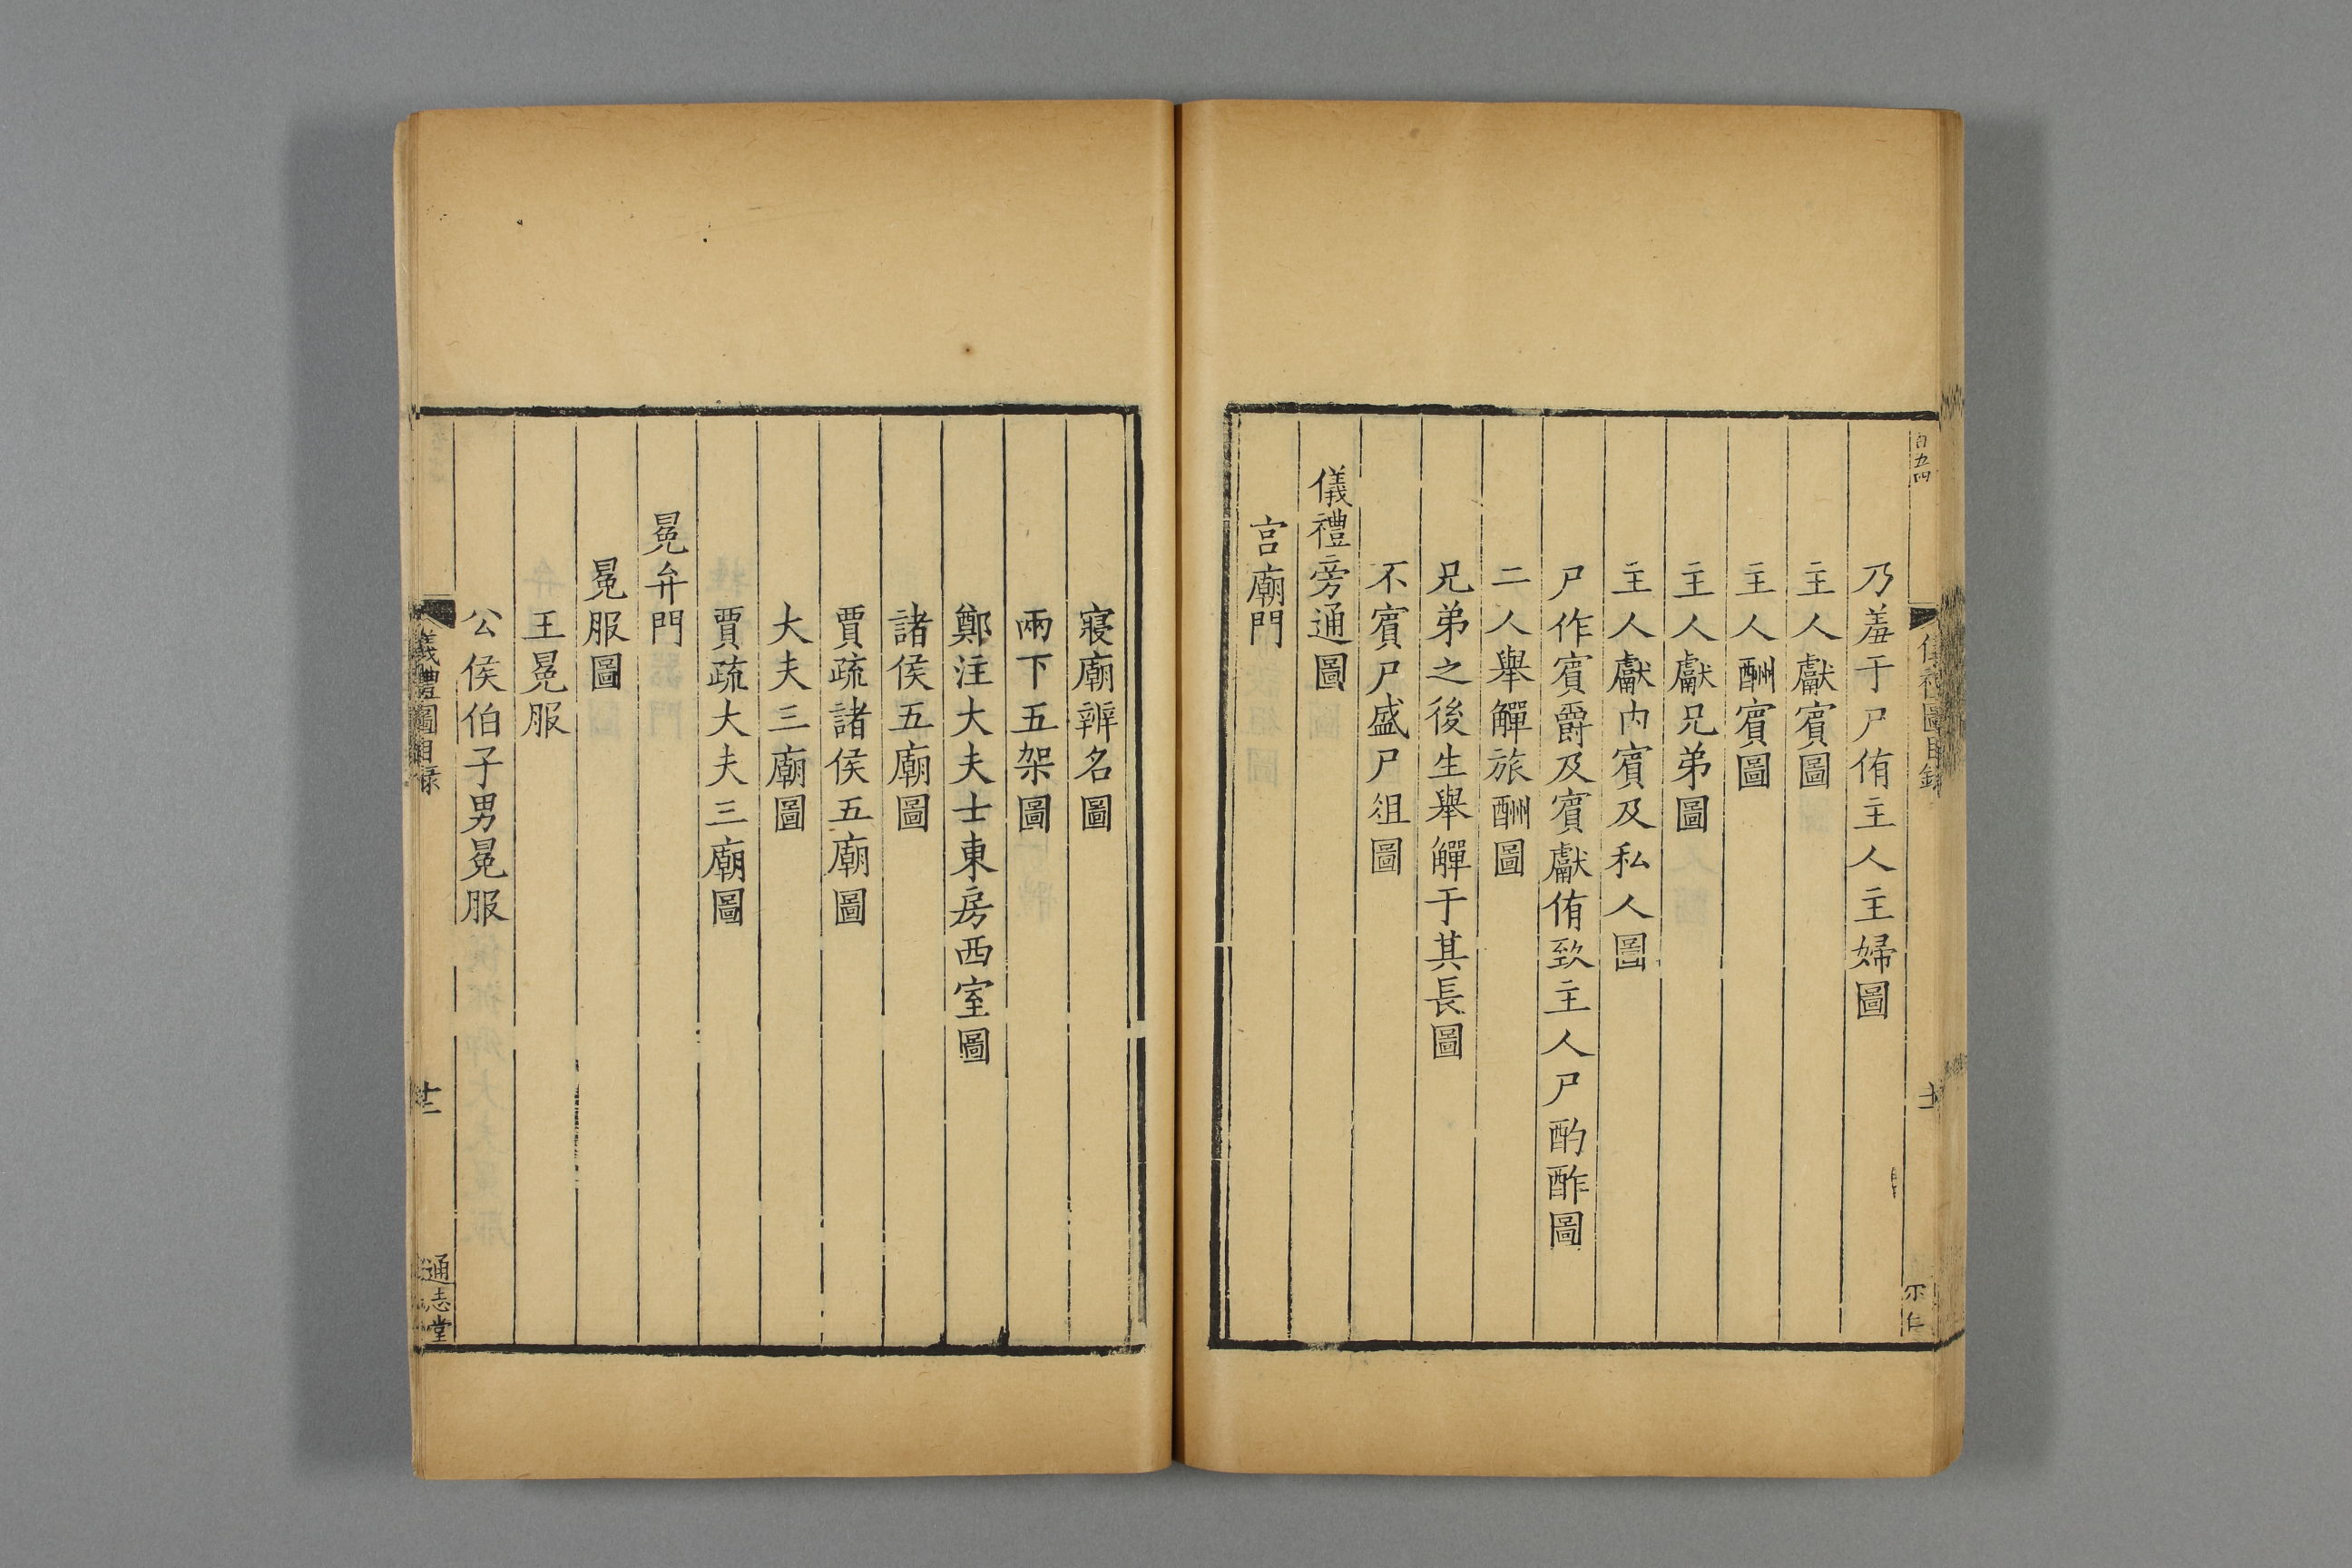 百五四
儀禮圖目錄
十一
乃羞于尸侑主人主婦圖
主人獻賓圖
主人酬賓圖
主人獻兄弟圖
主人獻內賓及私人圖
尸作賓爵及賓獻侑致主人尸酌酢圖
二人舉觶旅酬圖
兄弟之後生舉觶于其長圖
不賓尸盛尸俎圖
儀禮旁通圖
宮廟門
寢廟辨名圖
兩下五架圖
鄭注大夫士東房西室圖
諸侯五廟圖
賈疏諸侯五廟圖
大夫三廟圖
賈疏大夫三廟圖
冕弁門
冕服圖
王冕服
公侯伯子男冕服
儀禮圖目錄
十二
通志堂